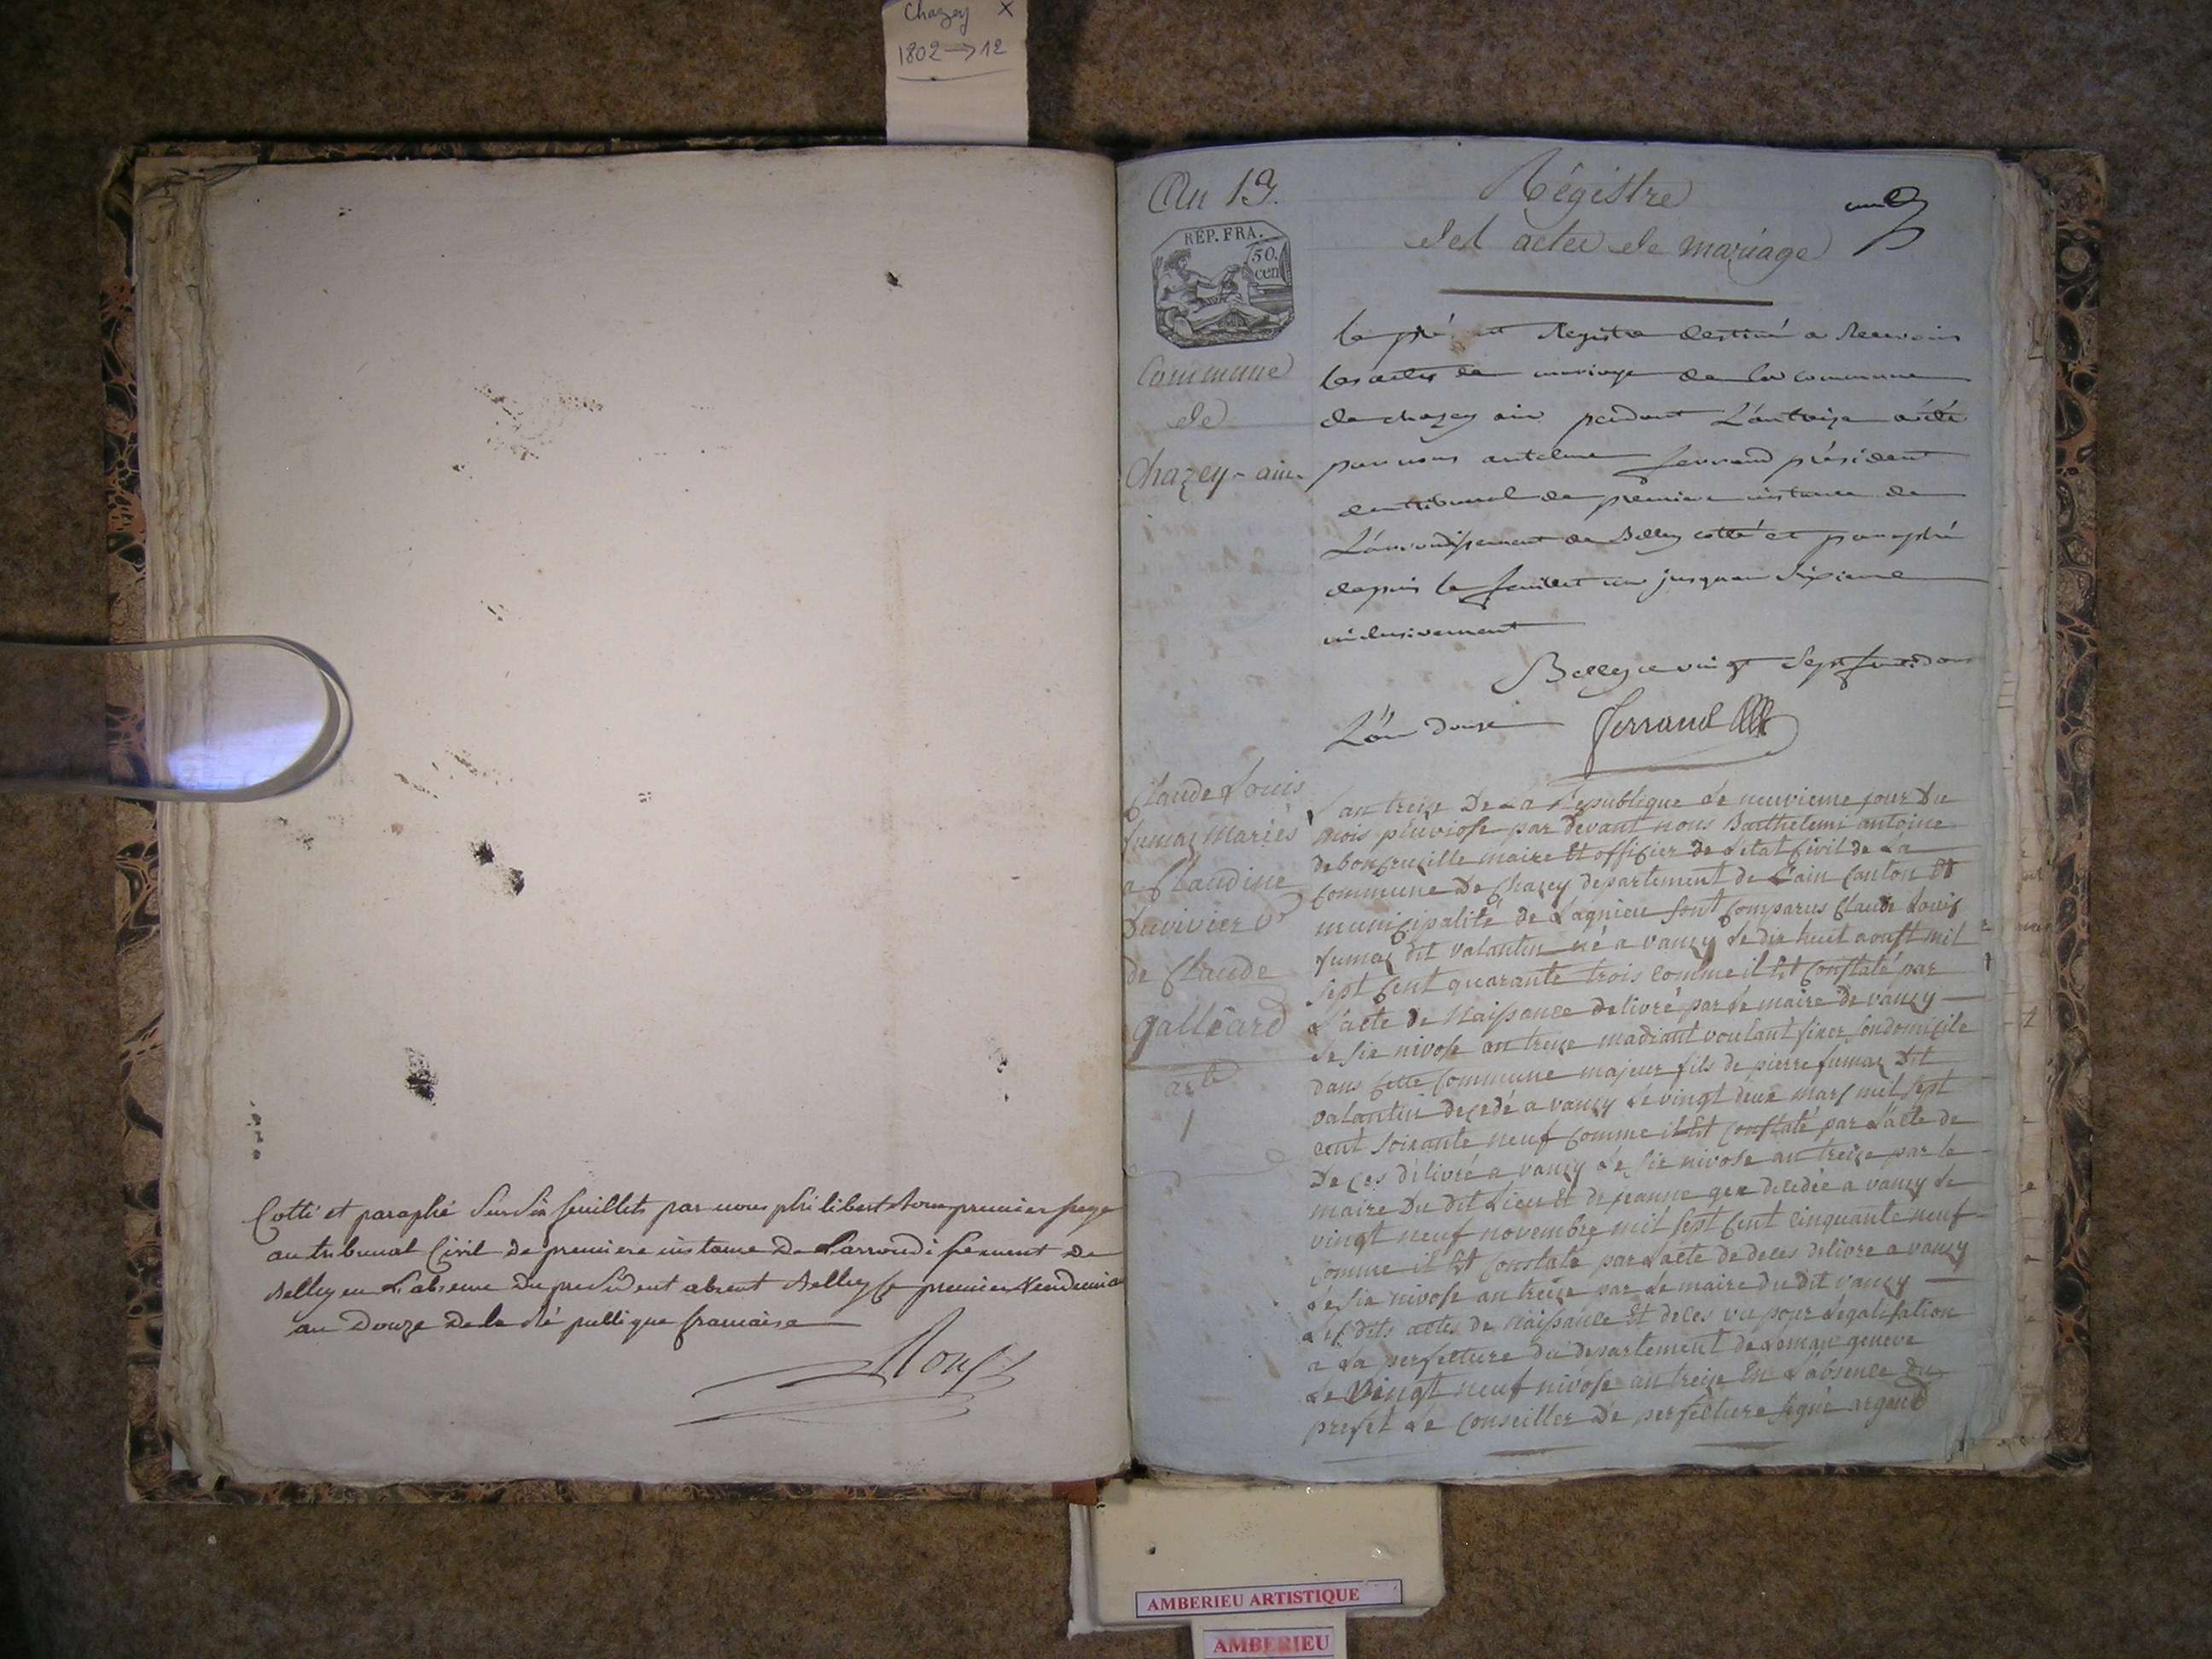 Chazey X
1802 → 12
Cotté et paraphé sur six feuillets par nous philibert premier juge
au tribunal Civil de premiere instance De Larrondissement de
Belley en L'absence Du president absent Belley le premier Vendemia
an Douze De la Republique francaise
An 13.
Régistre
des actes de mariage
RÉP. FRA.
50.
cen
Commune
de
Chazey-ain
Le présent Registre destiné a Recevoir
les actes de mariage de la commune
de chazey ain pendant L'an treize a été
par nous antelme ferrand président
du tribunal de premiere instance de
L'arrondissement de Belley cotté et paraphé
depuis le feuillet un jusquau Sixieme
inclusivement
Belley ce vingt Sept fructidor
L'an douze ferrand
Claude Louis
fumaz mariés
a Claudine
Duvivier Vve
de Claude
galléard
arle
1
L'an treize De La Republique Le neuvieme jour Du
mois pluviose par devant nous Barthelemi antoine
maire Et officier de Letat Civil de La
Commune De Chazey departement de L'ain Canton Et
municipalité de Lagnieu sont Comparus Claude Louis
fumaz dit valantin né a vanzy Le dix huit aoust mil
sept Cent quarante trois comme il Est Constaté par
L'acte de Naissance delivré par Le maire De vanzy
Le six nivose an treize voulant fixer son domicile
dans Cette Commune majeur fils de pierre fumaz Dit
valantin decedé a vanzy Le vingt deux mars mil sept
cent soixante neuf Comme il Est Constaté par L'acte de
Deces délivré a vanzy Le six nivose an treize par le
maire Du dit Lieu Et de jeanne decedée a vanzy Le
vingt neuf novembre mil sept Cent Cinquante neuf
Comme il Est Constate par L'acte de deces delivre a vanzy
Le six nivose an treize par Le maire du dit vanzy
Les dits actes de Naissance Et deces vu pour Legalisation
a La perfecture du departement de Leman geneve
Le Vingt neuf nivose an treize En L'absence du
prefet Le Conseiller De perfecture signé argand
AMBERIEU ARTISTIQUE
AMBERIEU